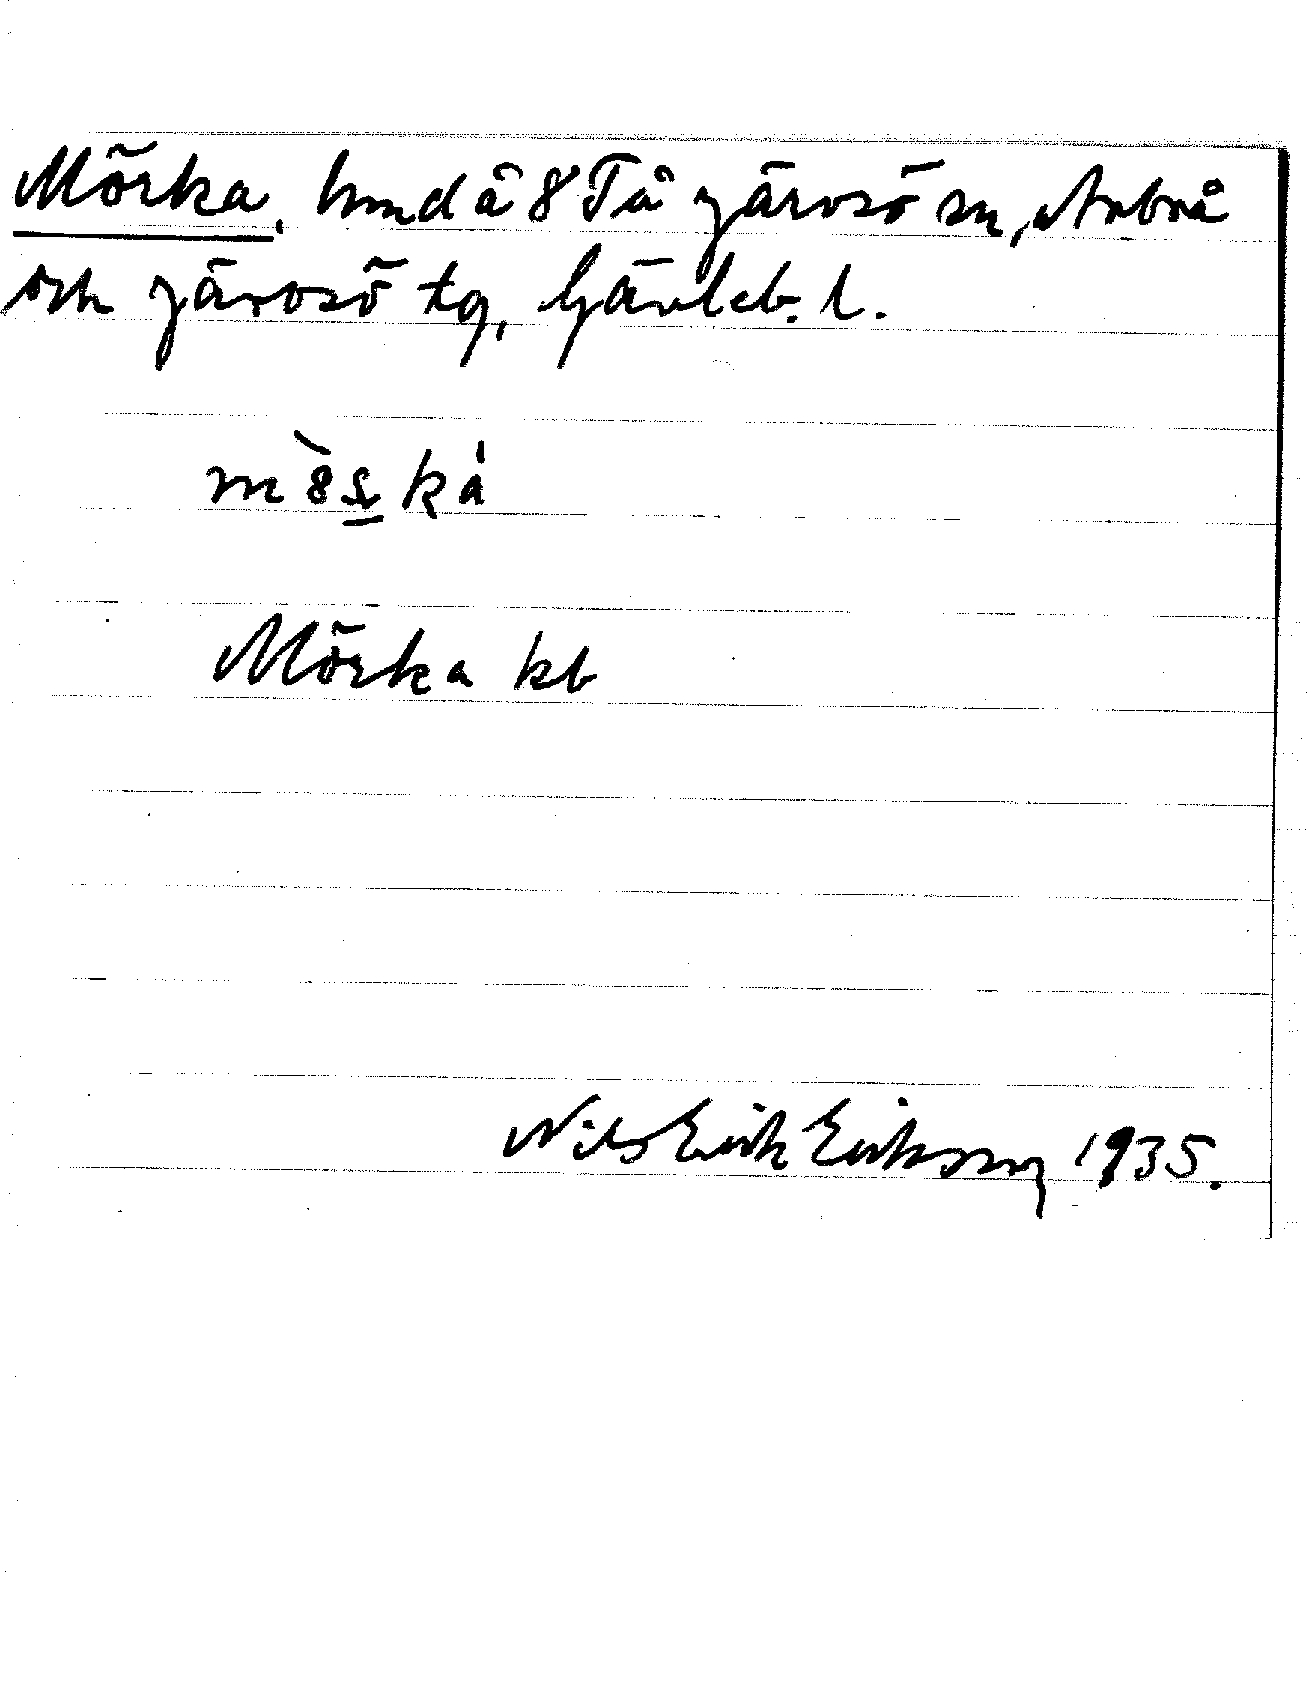 Mörka, hmd å 8 Tå Järvsö sn, Arbrå
och Järvsö tg, Gävleb. l.
Mörka kb
Nils Erik Erikson 1935.